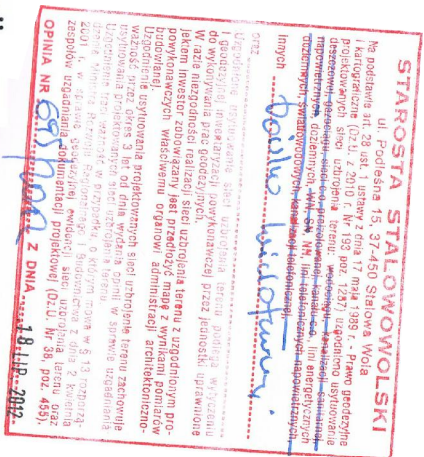 STAROSTA STALOWOWOLSKI
ul. Podleśna 15, 37-450 Stalowa Wola
Na podstawie art. 28 ust. 1 ustawy z dnia 17 maja 1989 r. - Prawo geodezyjne
i kartograficzne (Dz.U. z 2010 r. Nr 193 poz. 1287) uzgodniono usytuowanie
projektowanych sieci uzbrojenia terenu: wodociągu, kanalizacji sanitarnej,
deszczowej, gazociągu, sieci co preizolowanej, kanału co, linii energetycznych
napowietrznych, doziemnych, WN, SN, NN, linii telefonicznych napowietrznych,
doziemnych, światłowodowych, kanalizacji teletechnicznej
innych
oraz
Usytuowanie projektowane sieci uzbrojenia terenu podlega wytyczeniu
i geodezyjnej inwentaryzacji powykonawczej przez jednostki uprawnione
do wykonywania prac geodezyjnych.
W razie niezgodności realizacji sieci uzbrojenia terenu z uzgodnionym pro-
jektem inwestor zobowiązany jest przedłożyć mapę z wynikami pomiarów
powykonawczych właściwemu organowi administracji architektoniczno-
budowlanej.
Uzgodnienie usytuowania projektowanych sieci uzbrojenia terenu zachowuje
ważność przez okres 3 lat od dnia wydania opinii w sprawie uzgadniania
usytuowania projektowanych sieci uzbrojenia terenu.
Uzgodnienie traci ważność w przypadku o którym mowa w § 13 rozporzą-
dzenia Ministra Rozwoju Regionalnego i Budownictwa z dnia 2 kwietnia
2001 r. w sprawie geodezyjnej ewidencji sieci uzbrojenia terenu oraz
zespołów uzgadniania dokumentacji projektowej (Dz.U. Nr 38, poz. 455).
OPINIA NR 695/2012 Z DNIA 18 LIP. 2012